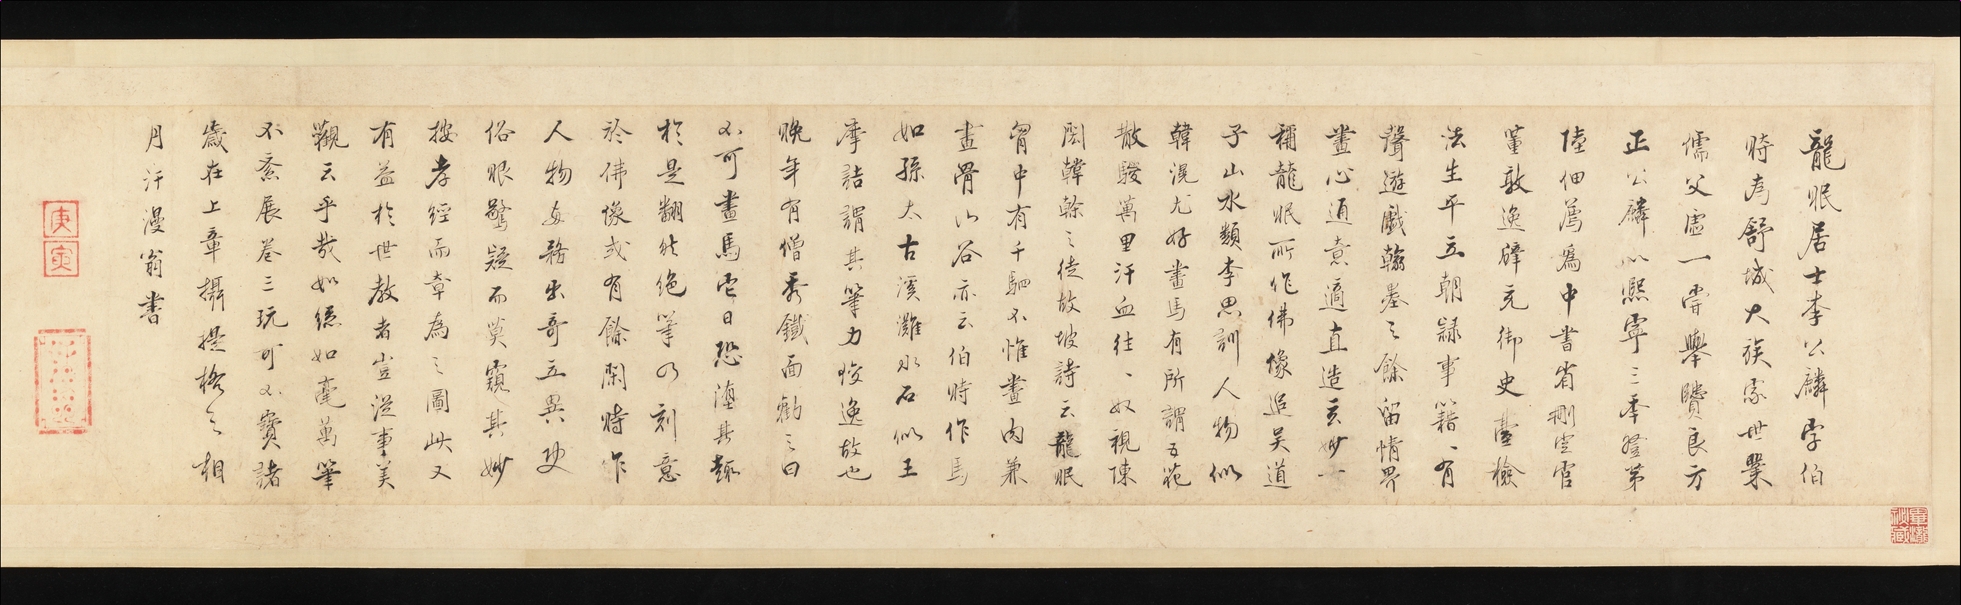 龍眠居士李公麟字伯
時為舒城大族家世業
儒父虛一嘗舉賢良方
正公麟以熙寧三年登第
陸佃薦為中書省刪定官
董敦逸辟充御史臺檢
法生平立朝隷事籍〻有
聲遊戲翰墨之餘留情界
畫心通意適直造玄妙一
稱龍眠所作佛像追吳道
子山水類李思訓人物似
韓滉尤好畫馬有所謂五花
散騣萬里汗血往〻奴視陳
閎韓榦之徒故坡詩云龍眠
胷中有千駟不惟畫肉兼
畫骨山谷亦云伯時作馬
如孫太古溪灘水石似王
摩詰謂其筆力峻逸故也
晚年有僧秀鐵面勸之曰
不可畫馬它日恐墮其趣
於是翻然絕筆乃刻意
於佛像或有餘閑時作
人物矣務出奇立異使
俗眼驚疑而莫窺其妙
按孝經而章為之圖此又
有益於世教者豈從事美
觀云乎哉如德如毫萬筆
不紊展卷三玩可不寶諸
歲在上章攝提格之相
月汗漫翁書
庚
寅
畢瀧
祕藏